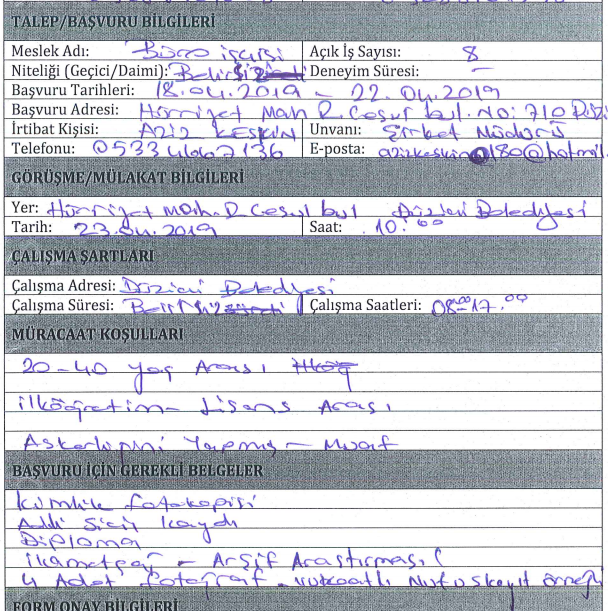 TALEP/BAŞVURU BİLGİLERİ
Meslek Adı: Büro işçisi Açık İş Sayısı: 8
Niteliği (Geçici/Daimi): Belirsiz Deneyim Süresi: —
Başvuru Tarihleri: 18.04.2019 - 22.04.2019
Başvuru Adresi: Hürriyet Mah R. Cesur bul. No: 710 Düzi
İrtibat Kişisi: Aziz KESKİN Unvanı: Şirket Müdürü
Telefonu: 0533 4667136 E-posta: azizkeskin0180@hotmail.
GÖRÜŞME/MÜLAKAT BİLGİLERİ
Yer: Hürriyet mah. R Cesur bul Düziçi Belediyesi
Tarih: 23.04.2019 Saat: 10.00
ÇALIŞMA ŞARTLARI
Çalışma Adresi: Düziçi Belediyesi
Çalışma Süresi: Belirsiz Çalışma Saatleri: 08.00-17.00
MÜRACAAT KOŞULLARI
20-40 yaş Arası
ilköğretim - Lisans Arası
Askerliğini Yapmış - Muaf
BAŞVURU İÇİN GEREKLİ BELGELER
Kimlik fotokopisi
Adli Sicil kaydı
Diploma
ikametgah - Arşif Araştırması
4 Adet fotoğraf - vukuatlı Nufus kayıt örneği
FORM ONAY BİLGİLERİ